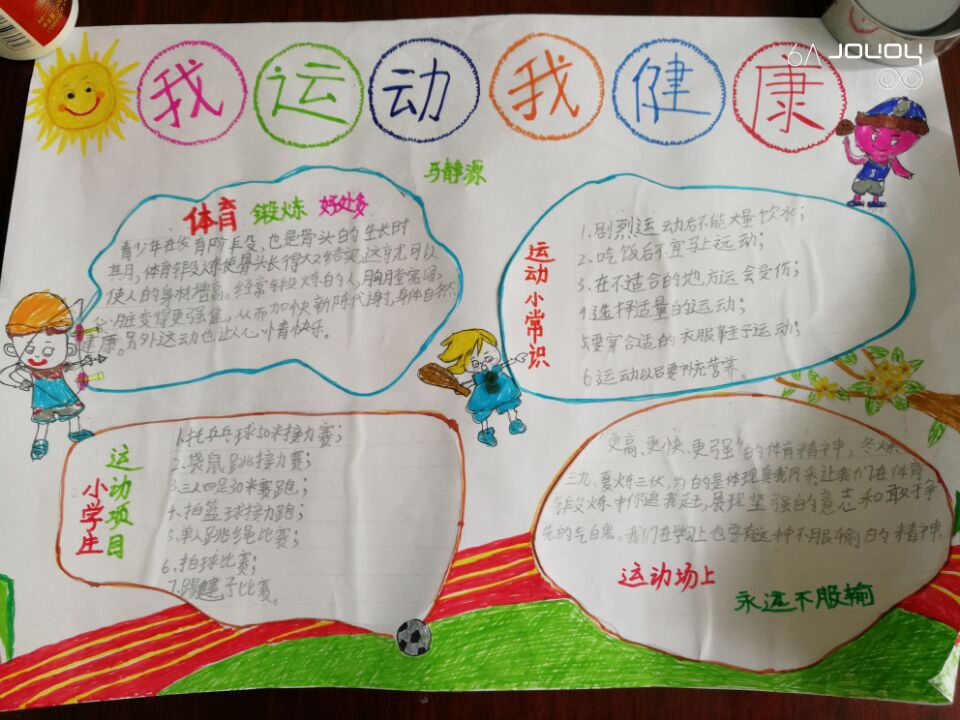 6A JOYOY
我运动我健康
马静源
体育 锻炼 好处多
青少年在发育阶段,也是骨头的生长时
其月,体育锻炼使骨头长得又粗又结实,这就可以
使人的身材增高。经常锻炼的人,胸膛宽阔,
心脏变得更强健,从而加快新陈代谢,身体自然
健康。另外运动也让人心情快乐。
运动小常识
1.剧烈运动后不能大量饮水;
2.吃饭后不宜马上运动;
3.在不适合的地方运会受伤;
4.选择适量的运动;
5.要穿合适的衣服鞋子运动;
6.运动以后要补充营养。
小学庄
运动项目
1.托乒乓球50米接力赛;
2.袋鼠跳接力赛;
3.三人四足30米赛跑;
4.拍篮球接力跑;
5.单人跳绳比赛;
6.拍球比赛;
7.踢毽子比赛。
“更高、更快、更强”的体育精神,冬炼
三九、夏炼三伏,为的是体现真我风采,让我们在体育
锻炼中你追我赶,展现坚强的意志和敢于争
先的气魄。我们在学习上也要有这种不服输的精神
运动场上
永远不服输